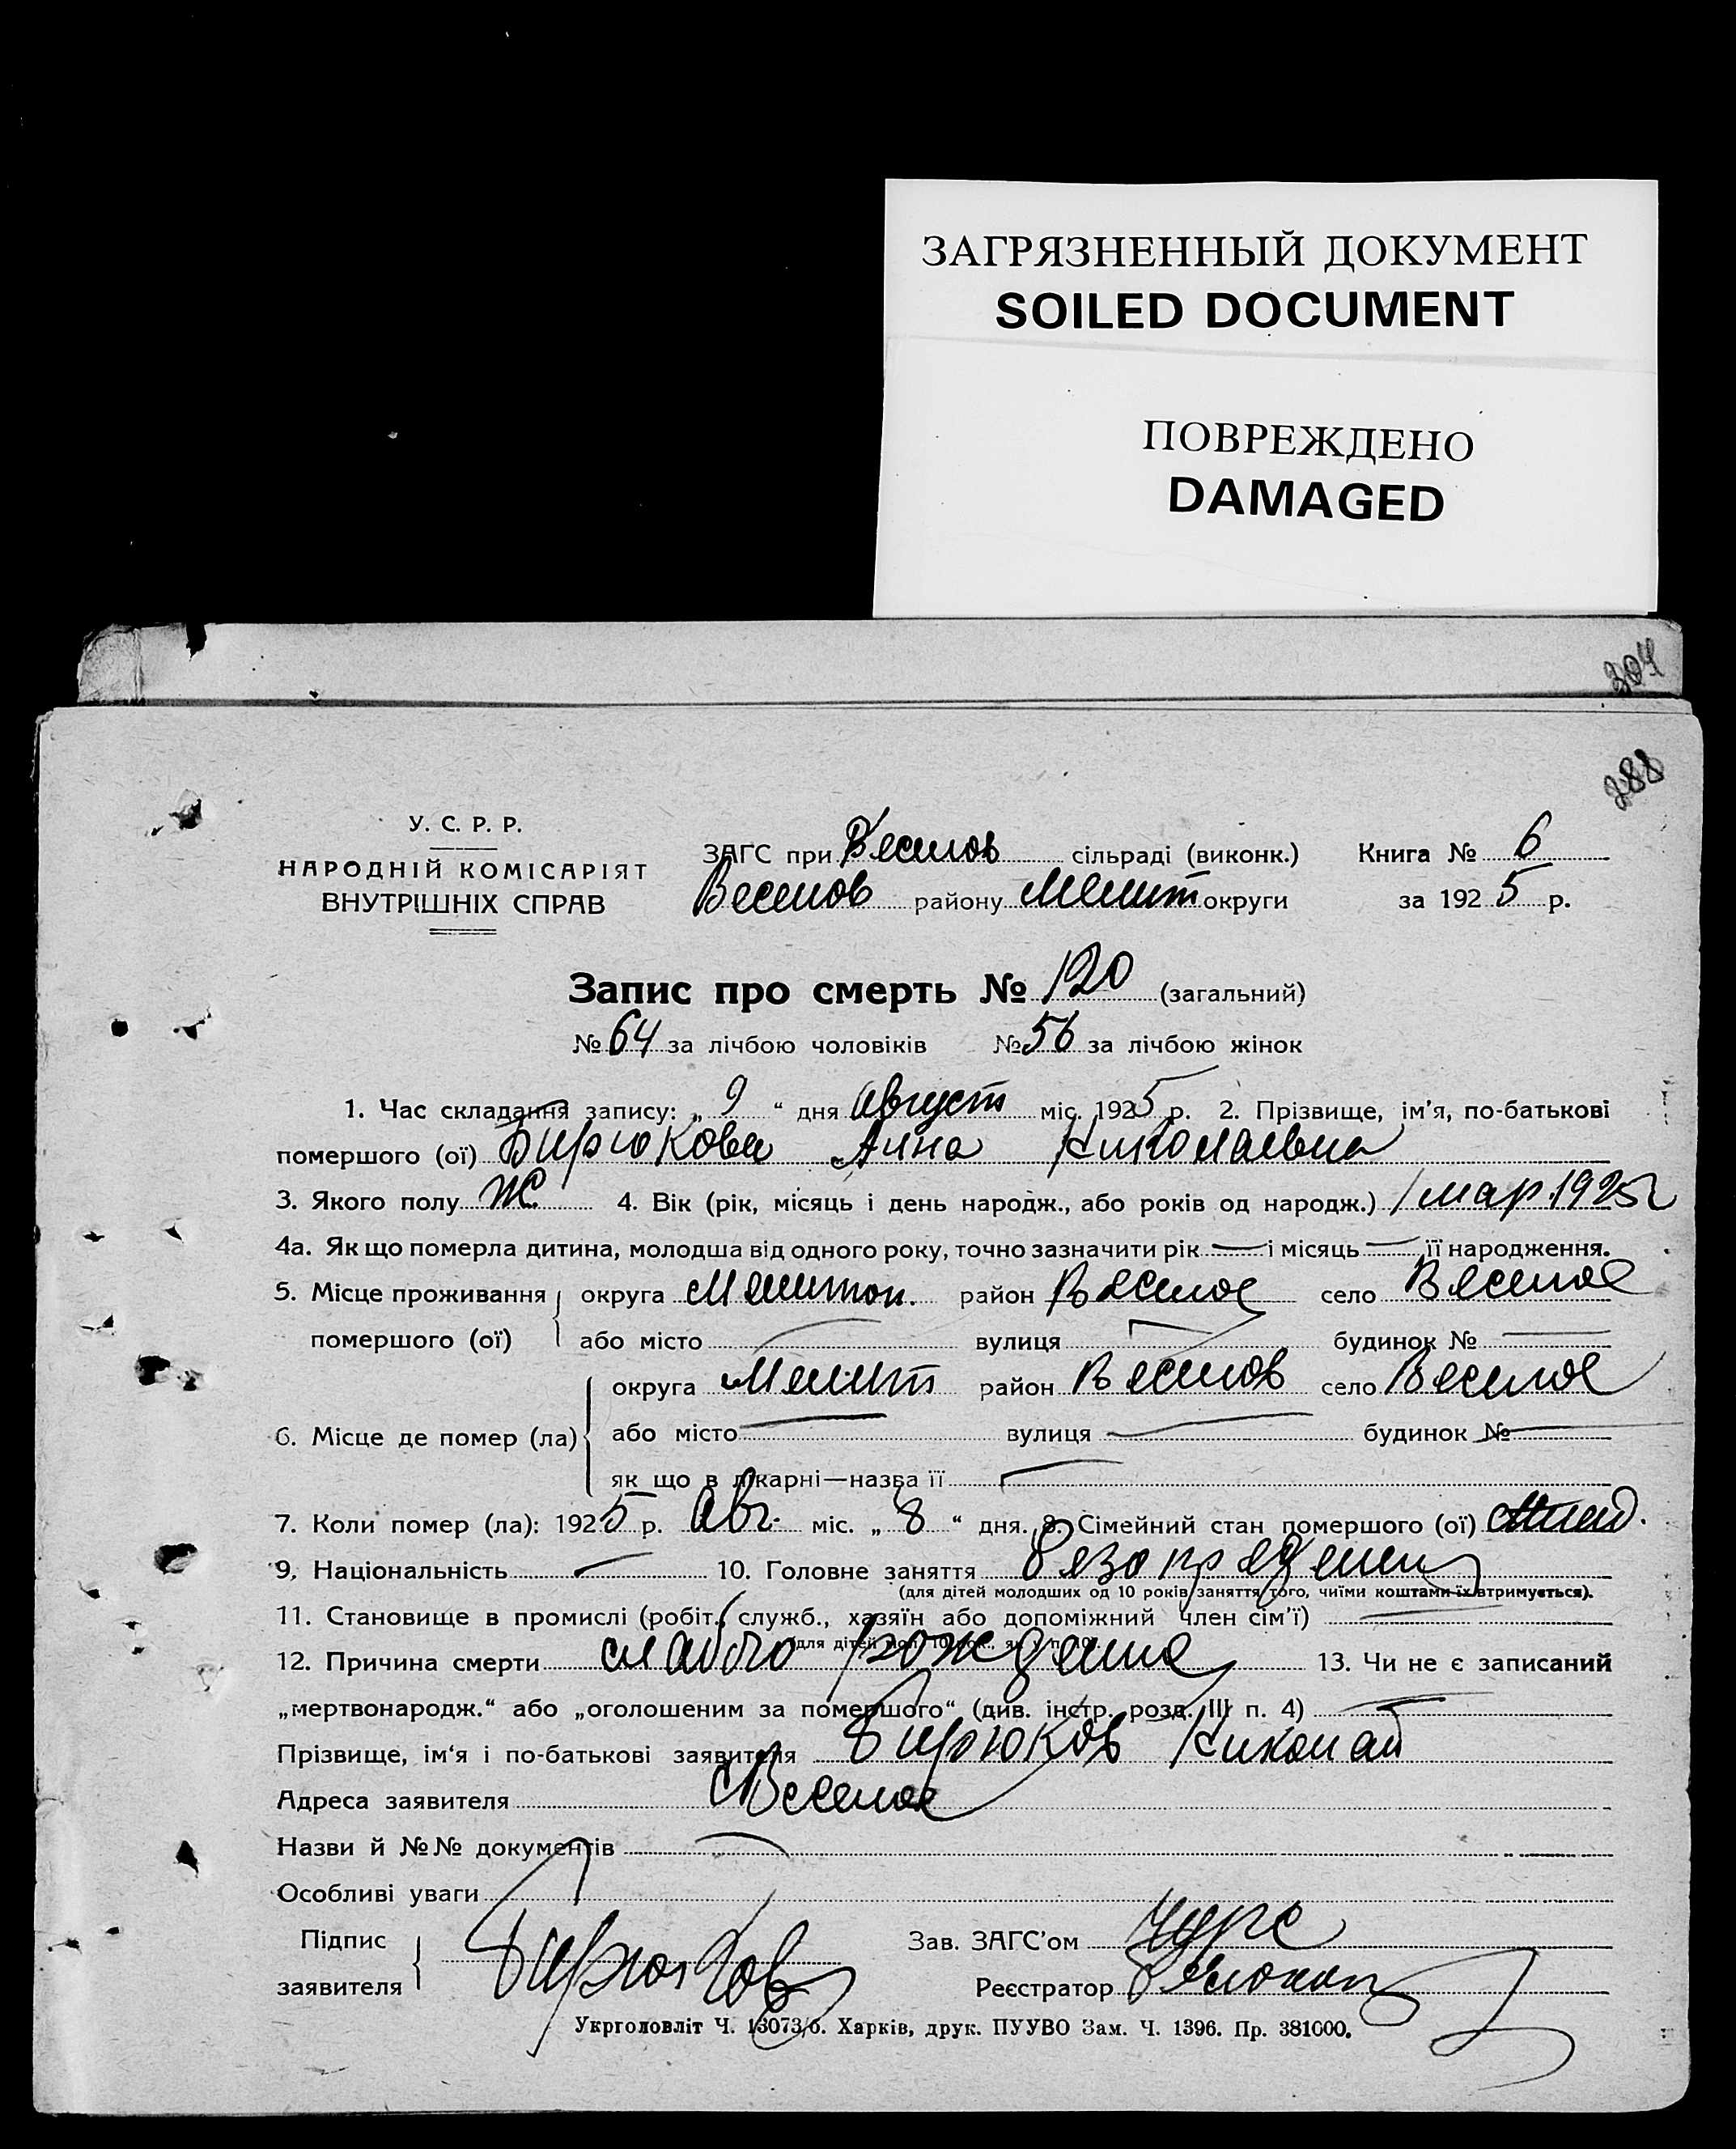 ЗАГРЯЗНЕННЫЙ ДОКУМЕНТ
SOILED DOCUMENT
ПОВРЕЖДЕНО
DAMAGED
304
288
У. С. Р. Р.
НАРОДНІЙ КОМІСАРІЯТ
ВНУТРІШНІХ СПРАВ
ЗАГС при Веселов сільраді (виконк.) Книга № 6
Веселов району Мелит округи за 1925 р.
Запис про смерть № 120 (загальний)
№ 64 за лічбою чоловіків № 56 за лічбою жінок
1. Час складання запису: „ 9 “ дня Август міс. 1925 р. 2. Прізвище, ім'я, по-батькові
помершого (ої) Бирюкова Анна Николаевна
3. Якого полу Ж. 4. Вік (рік, місяць і день народж., або років од народж.) 1 мар. 1925 г
4а. Як що померла дитина, молодша від одного року, точно зазначити рік — і місяць — її народження.
5. Місце проживання округа Мелитоп. район Веселое село Веселое
помершого (ої) або місто — вулиця — будинок № —
округа Мелит район Веселов село Веселое
6. Місце де помер (ла) або місто — вулиця — будинок № —
як що в лікарні—назва її —
7. Коли помер (ла): 1925 р. Авг. міс. „ 8 “ дня. 8. Сімейний стан помершого (ої)
9. Національність — 10. Головне заняття
(для дітей молодших од 10 років заняття того, чиїми коштами їх втримується).
11. Становище в промислі (робіт., служб., хазяїн або допоміжний член сім'ї) —
(для дітей мол. 10 рок., як у п. 10).
12. Причина смерти слабого рождения 13. Чи не є записаний
„мертвонародж.“ або „оголошеним за помершого“ (див. інстр. розд. III п. 4) —
Прізвище, ім‘я і по-батькові заявителя Бирюков Николай
Адреса заявителя с Веселое
Назви й №№ документів —
Особливі уваги
Підпис Зав. ЗАГС'ом
заявителя Бирюков Реєстратор
Укрголовліт Ч. 13073/б. Харків, друк. ПУУВО Зам. Ч. 1396. Пр. 381000.